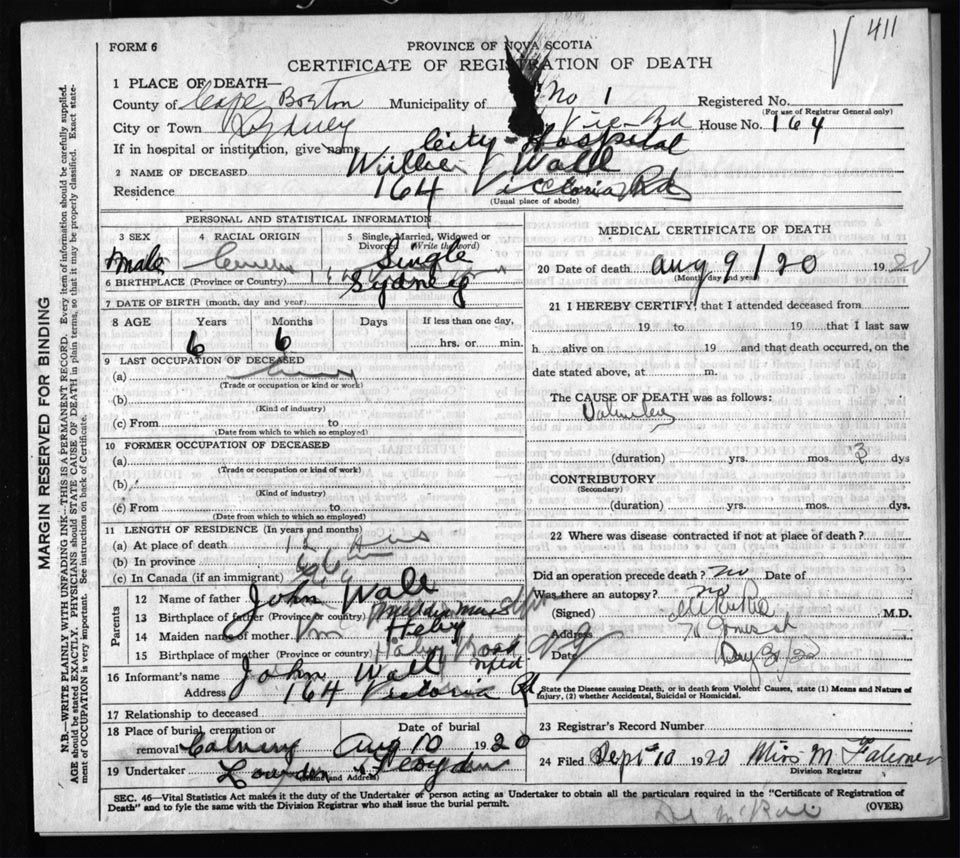 411
FORM 6
PROVINCE OF NOVA SCOTIA
CERTIFICATE OF REGISTRATION OF DEATH
1 PLACE OF DEATH—
County of Cape Breton Municipality of No 1 Registered No.
(For use of Registrar General only)
City or Town Sydney Vic Rd House No. 164
If in hospital or institution, give name City Hospital
2 NAME OF DECEASED Willie J Wall
Residence 164 Victoria Rd
(Usual place of abode)
PERSONAL AND STATISTICAL INFORMATION
3 SEX 4 RACIAL ORIGIN 5 Single, Married, Widowed or Divorced (Write the word)
Male Single
6 BIRTHPLACE (Province or Country) Sydney
7 DATE OF BIRTH (month, day and year)
8 AGE Years Months Days If less than one day,
6 6 hrs. or min.
9 LAST OCCUPATION OF DECEASED
(a)
(Trade or occupation or kind or work)
(b)
(Kind of industry)
(c) From to
(Date from which to which so employed)
10 FORMER OCCUPATION OF DECEASED
(a)
(Trade or occupation or kind of work)
(b)
(Kind of industry)
(c) From to
(Date from which to which so employed)
11 LENGTH OF RESIDENCE (In years and months)
(a) At place of death
(b) In province
(c) In Canada (if an immigrant)
Parents
12 Name of father John Wall
13 Birthplace of father (Province or country)
14 Maiden name of mother
15 Birthplace of mother (Province or country)
16 Informant's name John Wall
Address 164 Victoria Rd
17 Relationship to deceased
18 Place of burial, cremation or removal Calvary Date of burial Aug 10 1920
19 Undertaker
(Name and Address)
MEDICAL CERTIFICATE OF DEATH
20 Date of death Aug 9/20 1920
(Month, day and year)
21 I HEREBY CERTIFY, that I attended deceased from
19 to 19 that I last saw
h alive on 19 and that death occurred, on the
date stated above, at m.
The CAUSE OF DEATH was as follows:
(duration) yrs. mos. 3 dys
CONTRIBUTORY
(Secondary)
(duration) yrs. mos. dys.
22 Where was disease contracted if not at place of death?
Did an operation precede death? No Date of
Was there an autopsy? no
(Signed) M.D.
Address
Date
State the Disease causing Death, or in death from Violent Causes, state (1) Means and Nature of
Injury, (2) whether Accidental, Suicidal or Homicidal.
23 Registrar's Record Number
24 Filed Sept 10 1920 Miss M
Division Registrar
SEC. 46—Vital Statistics Act makes it the duty of the Undertaker or person acting as Undertaker to obtain all the particulars required in the "Certificate of Registration of
Death" and to fyle the same with the Division Registrar who shall issue the burial permit.
(OVER)
MARGIN RESERVED FOR BINDING
N.B.—WRITE PLAINLY WITH UNFADING INK—THIS IS A PERMANENT RECORD. Every item of information should be carefully supplied.
AGE should be stated EXACTLY. PHYSICIANS should STATE CAUSE OF DEATH in plain terms, so that it may be properly classified. Exact state-
ment of OCCUPATION is very important. See instructions on back of Certificate.